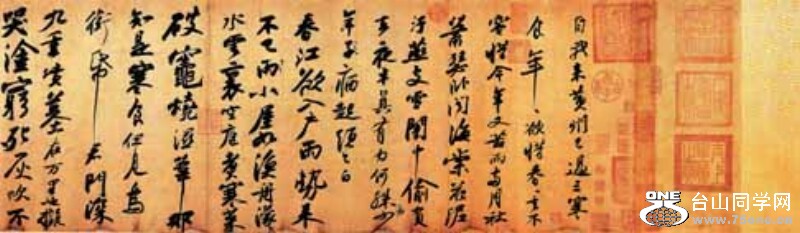 自我來黃州已過三寒
食年〻欲惜春〻去不
容惜今年又苦雨兩月秋
蕭瑟臥聞海棠花泥
汙燕支雪闇中偷負
去夜半真有力何殊少
年子病起頭已白
春江欲入戶雨勢來
不已雨小屋如漁舟濛〻
水雲裏空庖煮寒菜
破竈燒濕葦那
知是寒食但見烏
銜帋君門深
九重墳墓在萬里也擬
哭塗窮死灰吹不
ONE
台山同学网